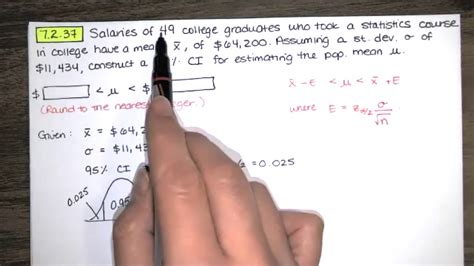 7.2.37 Salaries of 49 college graduates who took a statistics course
in college have a mean, x̄, of $64,200. Assuming a st. dev. σ of
$11,434, construct a % CI for estimating the pop. mean μ.
$ < μ < $
(Round to the nearest integer.)
x̄ - E < μ < x̄ + E
where E = z_{α/2} σ/√n
Given: x̄ = $64,
σ = $11,
95% CI
/2 = 0.025
0.025
0.95